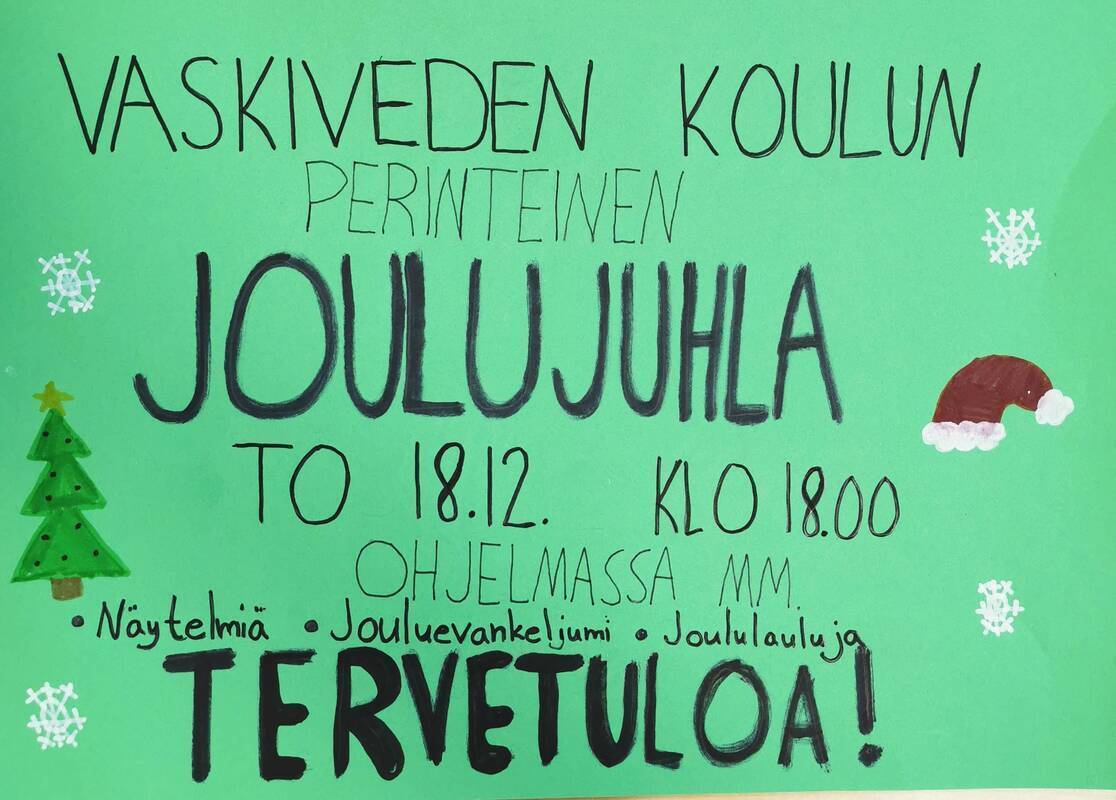 VASKIVEDEN KOULUN
PERINTEINEN
JOULUJUHLA
TO 18.12. KLO 18.00
OHJELMASSA MM.
• Näytelmiä • Jouluevankeljumi • Joululauluja
TERVETULOA!